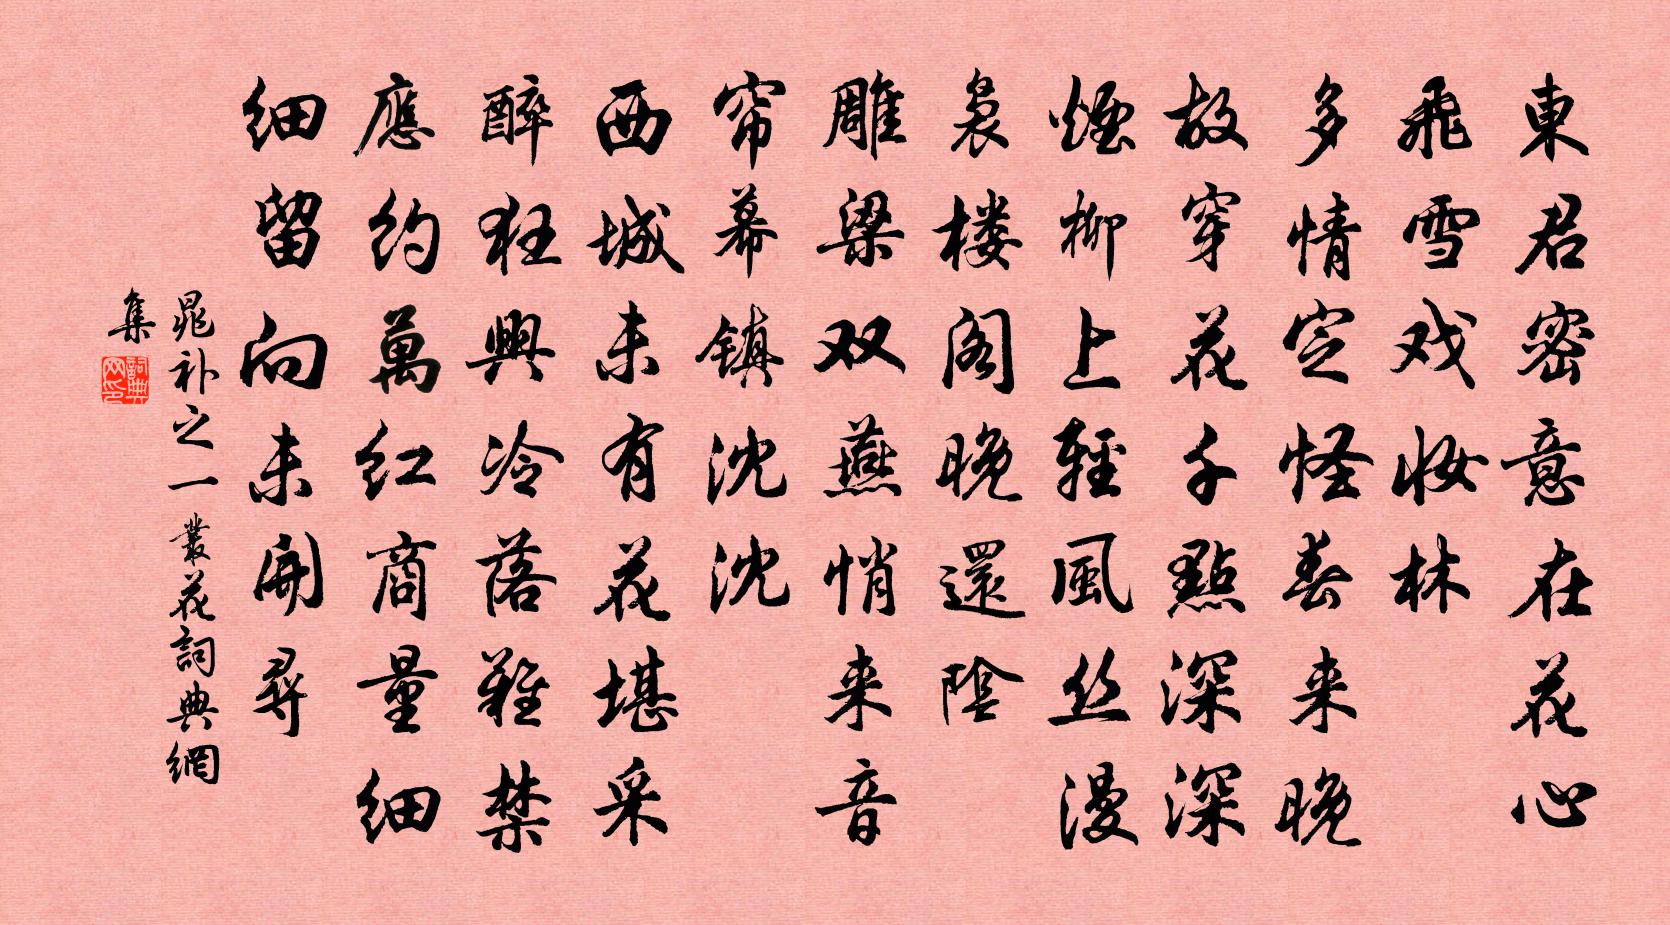 東君密意在花心
飛雪戏妆林
多情定怪春来晚
故穿花千點深深
煙柳上輕風丝漫
袅楼阁晚還陰
雕梁双燕悄来音
帘幕镇沈沈
西城未有花堪采
醉狂興冷落難禁
應约萬红商量細
細留向未開尋
晁补之一叢花詞典網
集
詞典網印